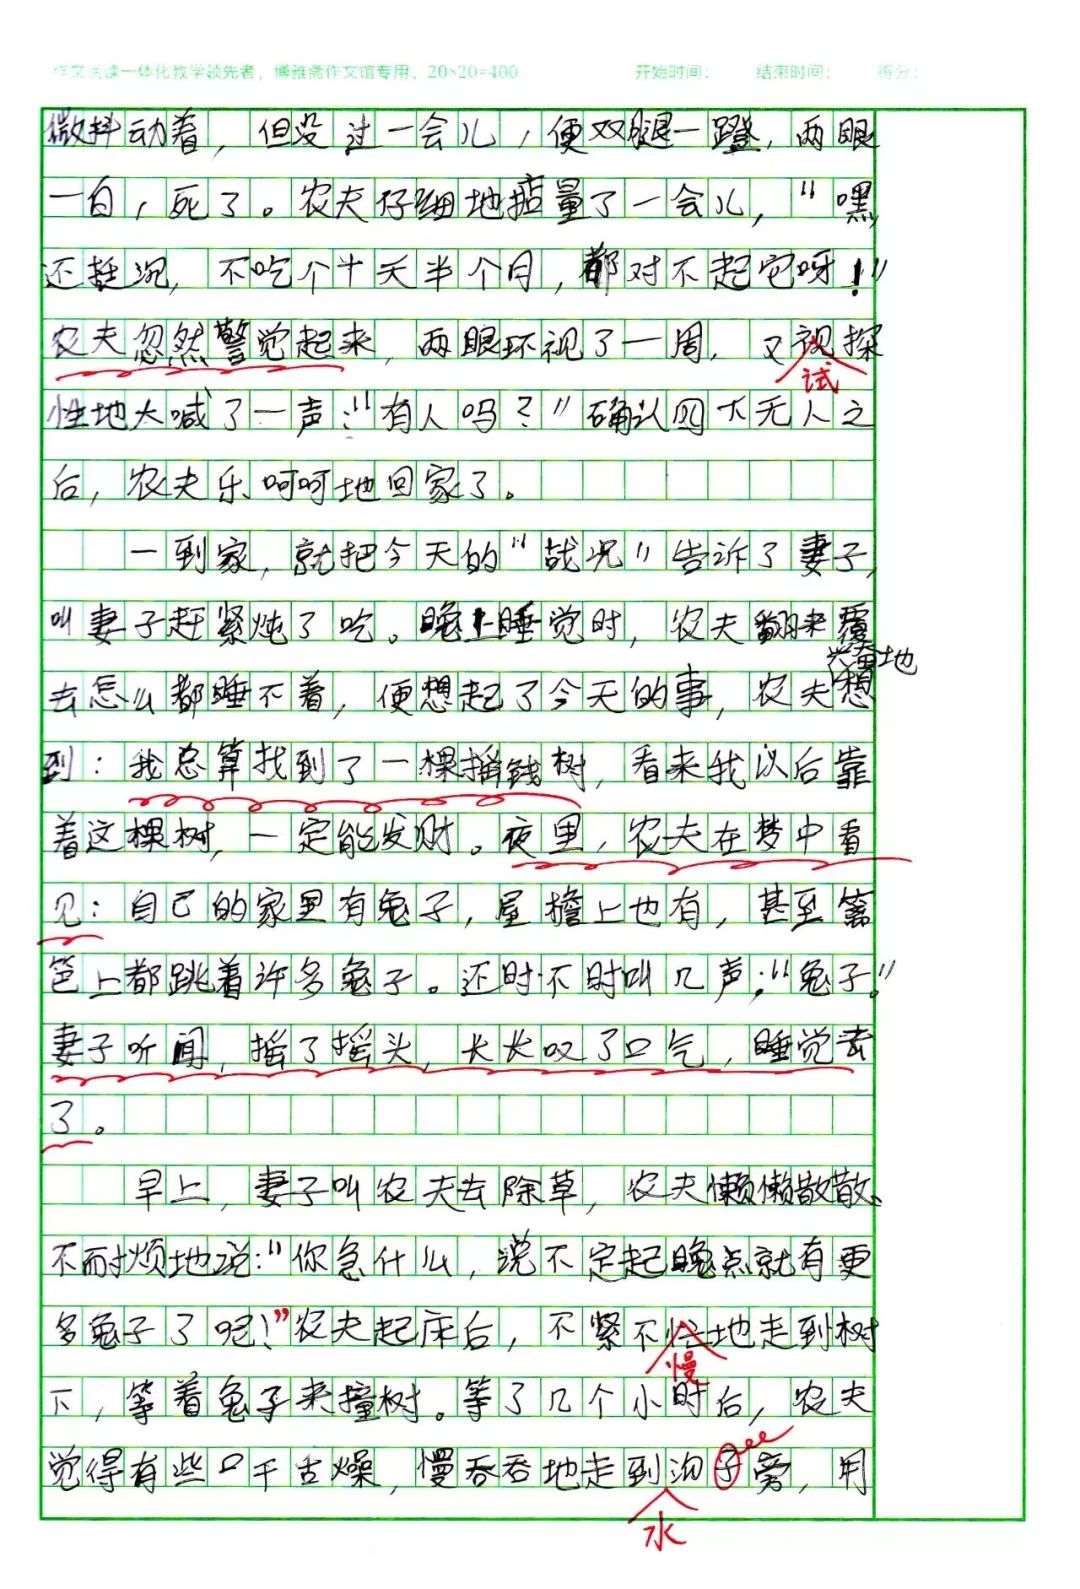 作文阅读一体化教学领先者，博雅斋作文馆专用，20×20=400 开始时间： 结束时间： 得分：
微抖动着，但没过一会儿，便双腿一蹬，两眼
一白，死了。农夫仔细地掂量了一会儿，“嘿，
还挺沉，不吃个十天半个月，都对不起它呀！”
农夫忽然警觉起来，两眼环视了一周，又视探
试
性地大喊了一声：“有人吗？”确认四下无人之
后，农夫乐呵呵地回家了。
一到家，就把今天的“战况”告诉了妻子，
叫妻子赶紧炖了吃。晚上睡觉时，农夫翻来覆
兴奋地
去怎么都睡不着，便想起了今天的事，农夫想
到：我总算找到了一棵摇钱树，看来我以后靠
着这棵树，一定能发财。夜里，农夫在梦中看
见：自己的家里有兔子，屋檐上也有，甚至篱
笆上都跳着许多兔子。还时不时叫几声：“兔子。”
妻子听闻，摇了摇头，长长叹了口气，睡觉去
了。
早上，妻子叫农夫去除草，农夫懒懒散散、
不耐烦地说：“你急什么，说不定起晚点就有更
多兔子了呢！”农夫起床后，不紧不忙地走到树
慢
下，等着兔子来撞树。等了几个小时后，农夫
觉得有些口干舌燥，慢吞吞地走到沟子旁，用
水